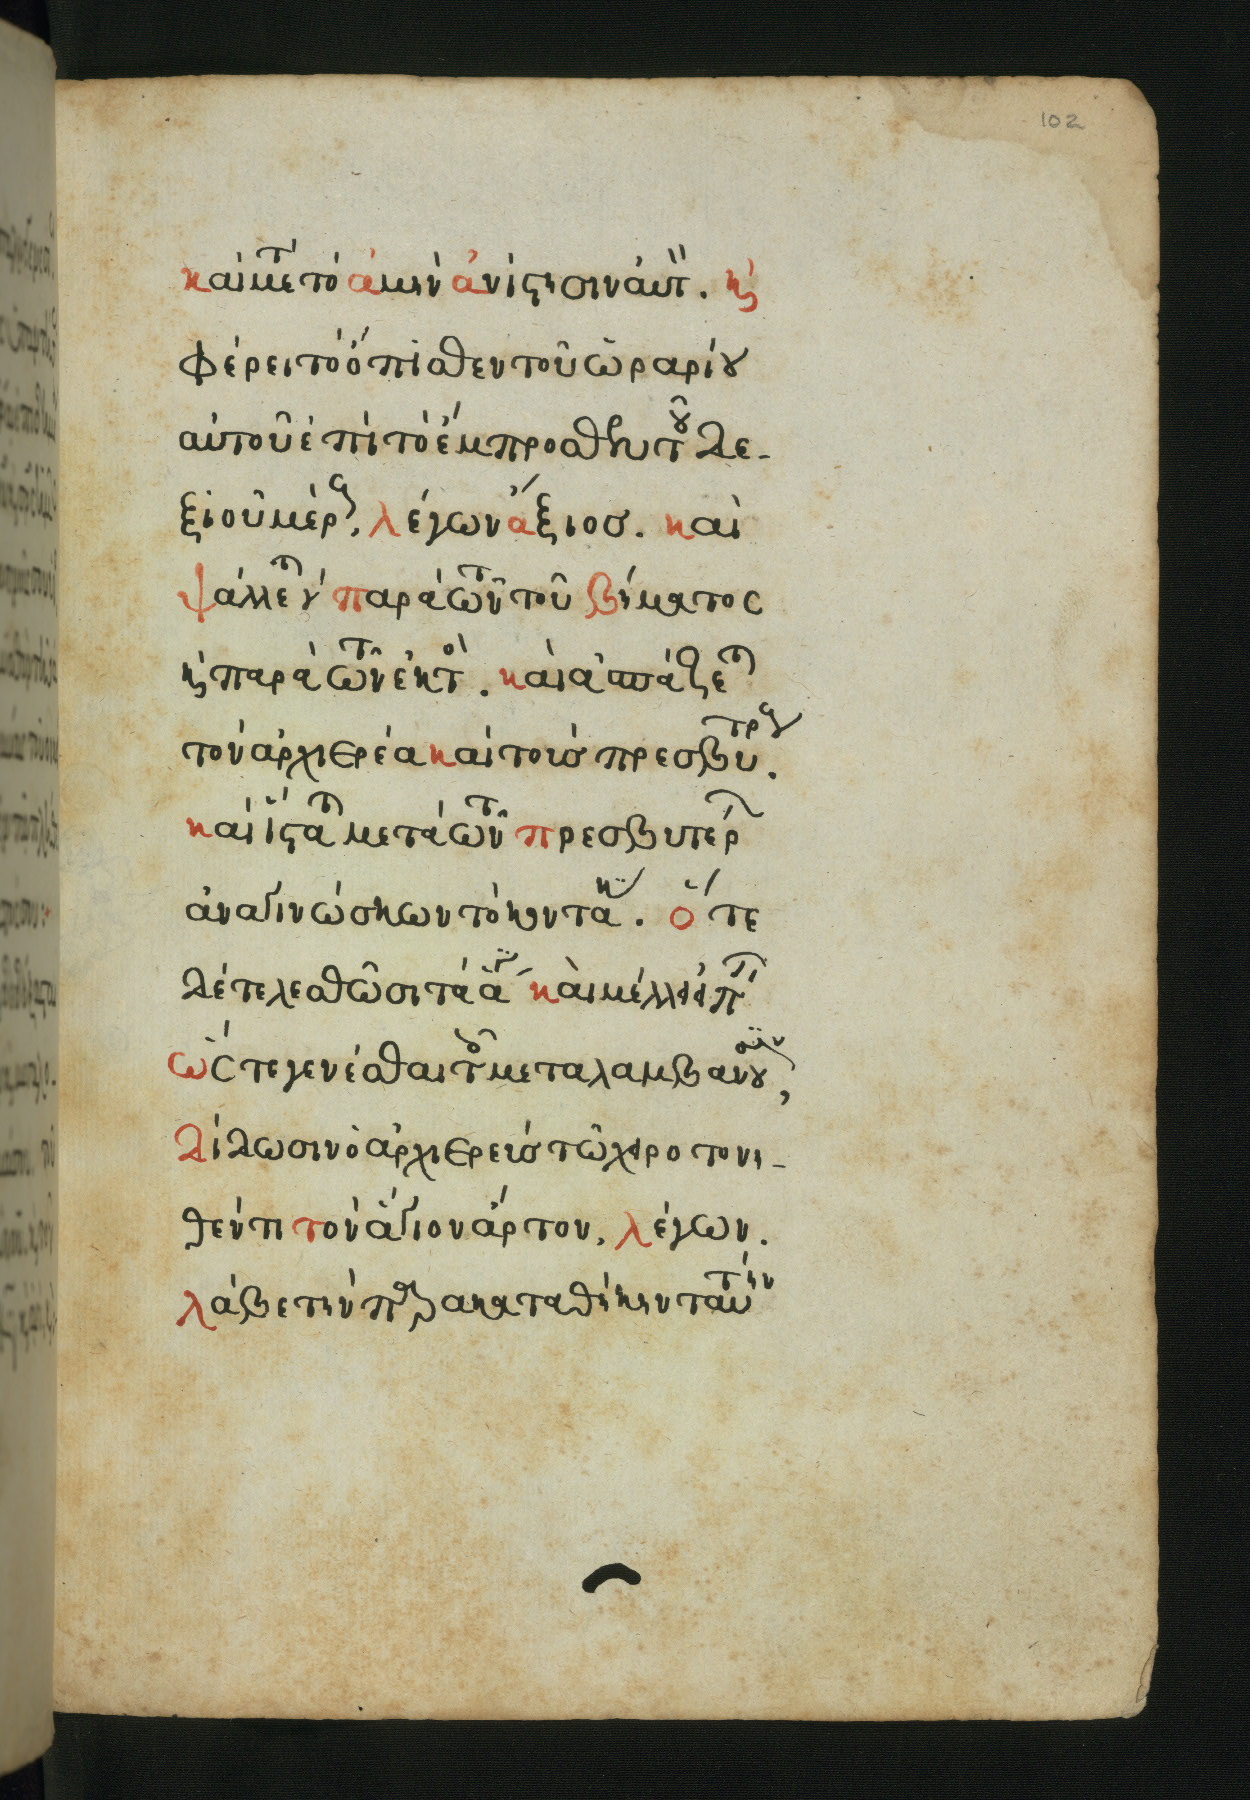 102
καὶ με τ τὸ ἀμὴν ἀνίστησιν αὐτ. κ
φέρει τὸ ὄπισθεν τοῦ ὡραρίου
αὐτοῦ ἐπὶ τὸ ἔμπροσθεν τοῦ δε-
ξιοῦ μέρους, λέγων ἄξιος. καὶ
ψάλλετ γ παρὰ τῶν τοῦ βήματος
κ παρὰ τῶν ἐκτὸ. καὶ ἀσπάζετ
τὸν ἀρχιερέα καὶ τοὺς πρεσβυτρους.
καὶ ἵσταται μετὰ τῶν πρεσβυτέρ
ἀναγινώσκων τὸ κοντά. ὅτε
δὲ τελεσθῶσι τὰ ἅγ καὶ μέλλει
ὥστε γενέσθαι τοῦ μεταλαμβαν
δίδωσιν ὁ ἀρχιερεὺς τῶ χειροτονη-
θέντι τὸν ἅγιον ἄρτον, λέγων.
λάβε τὴν παρακαταθήκην ταύτην